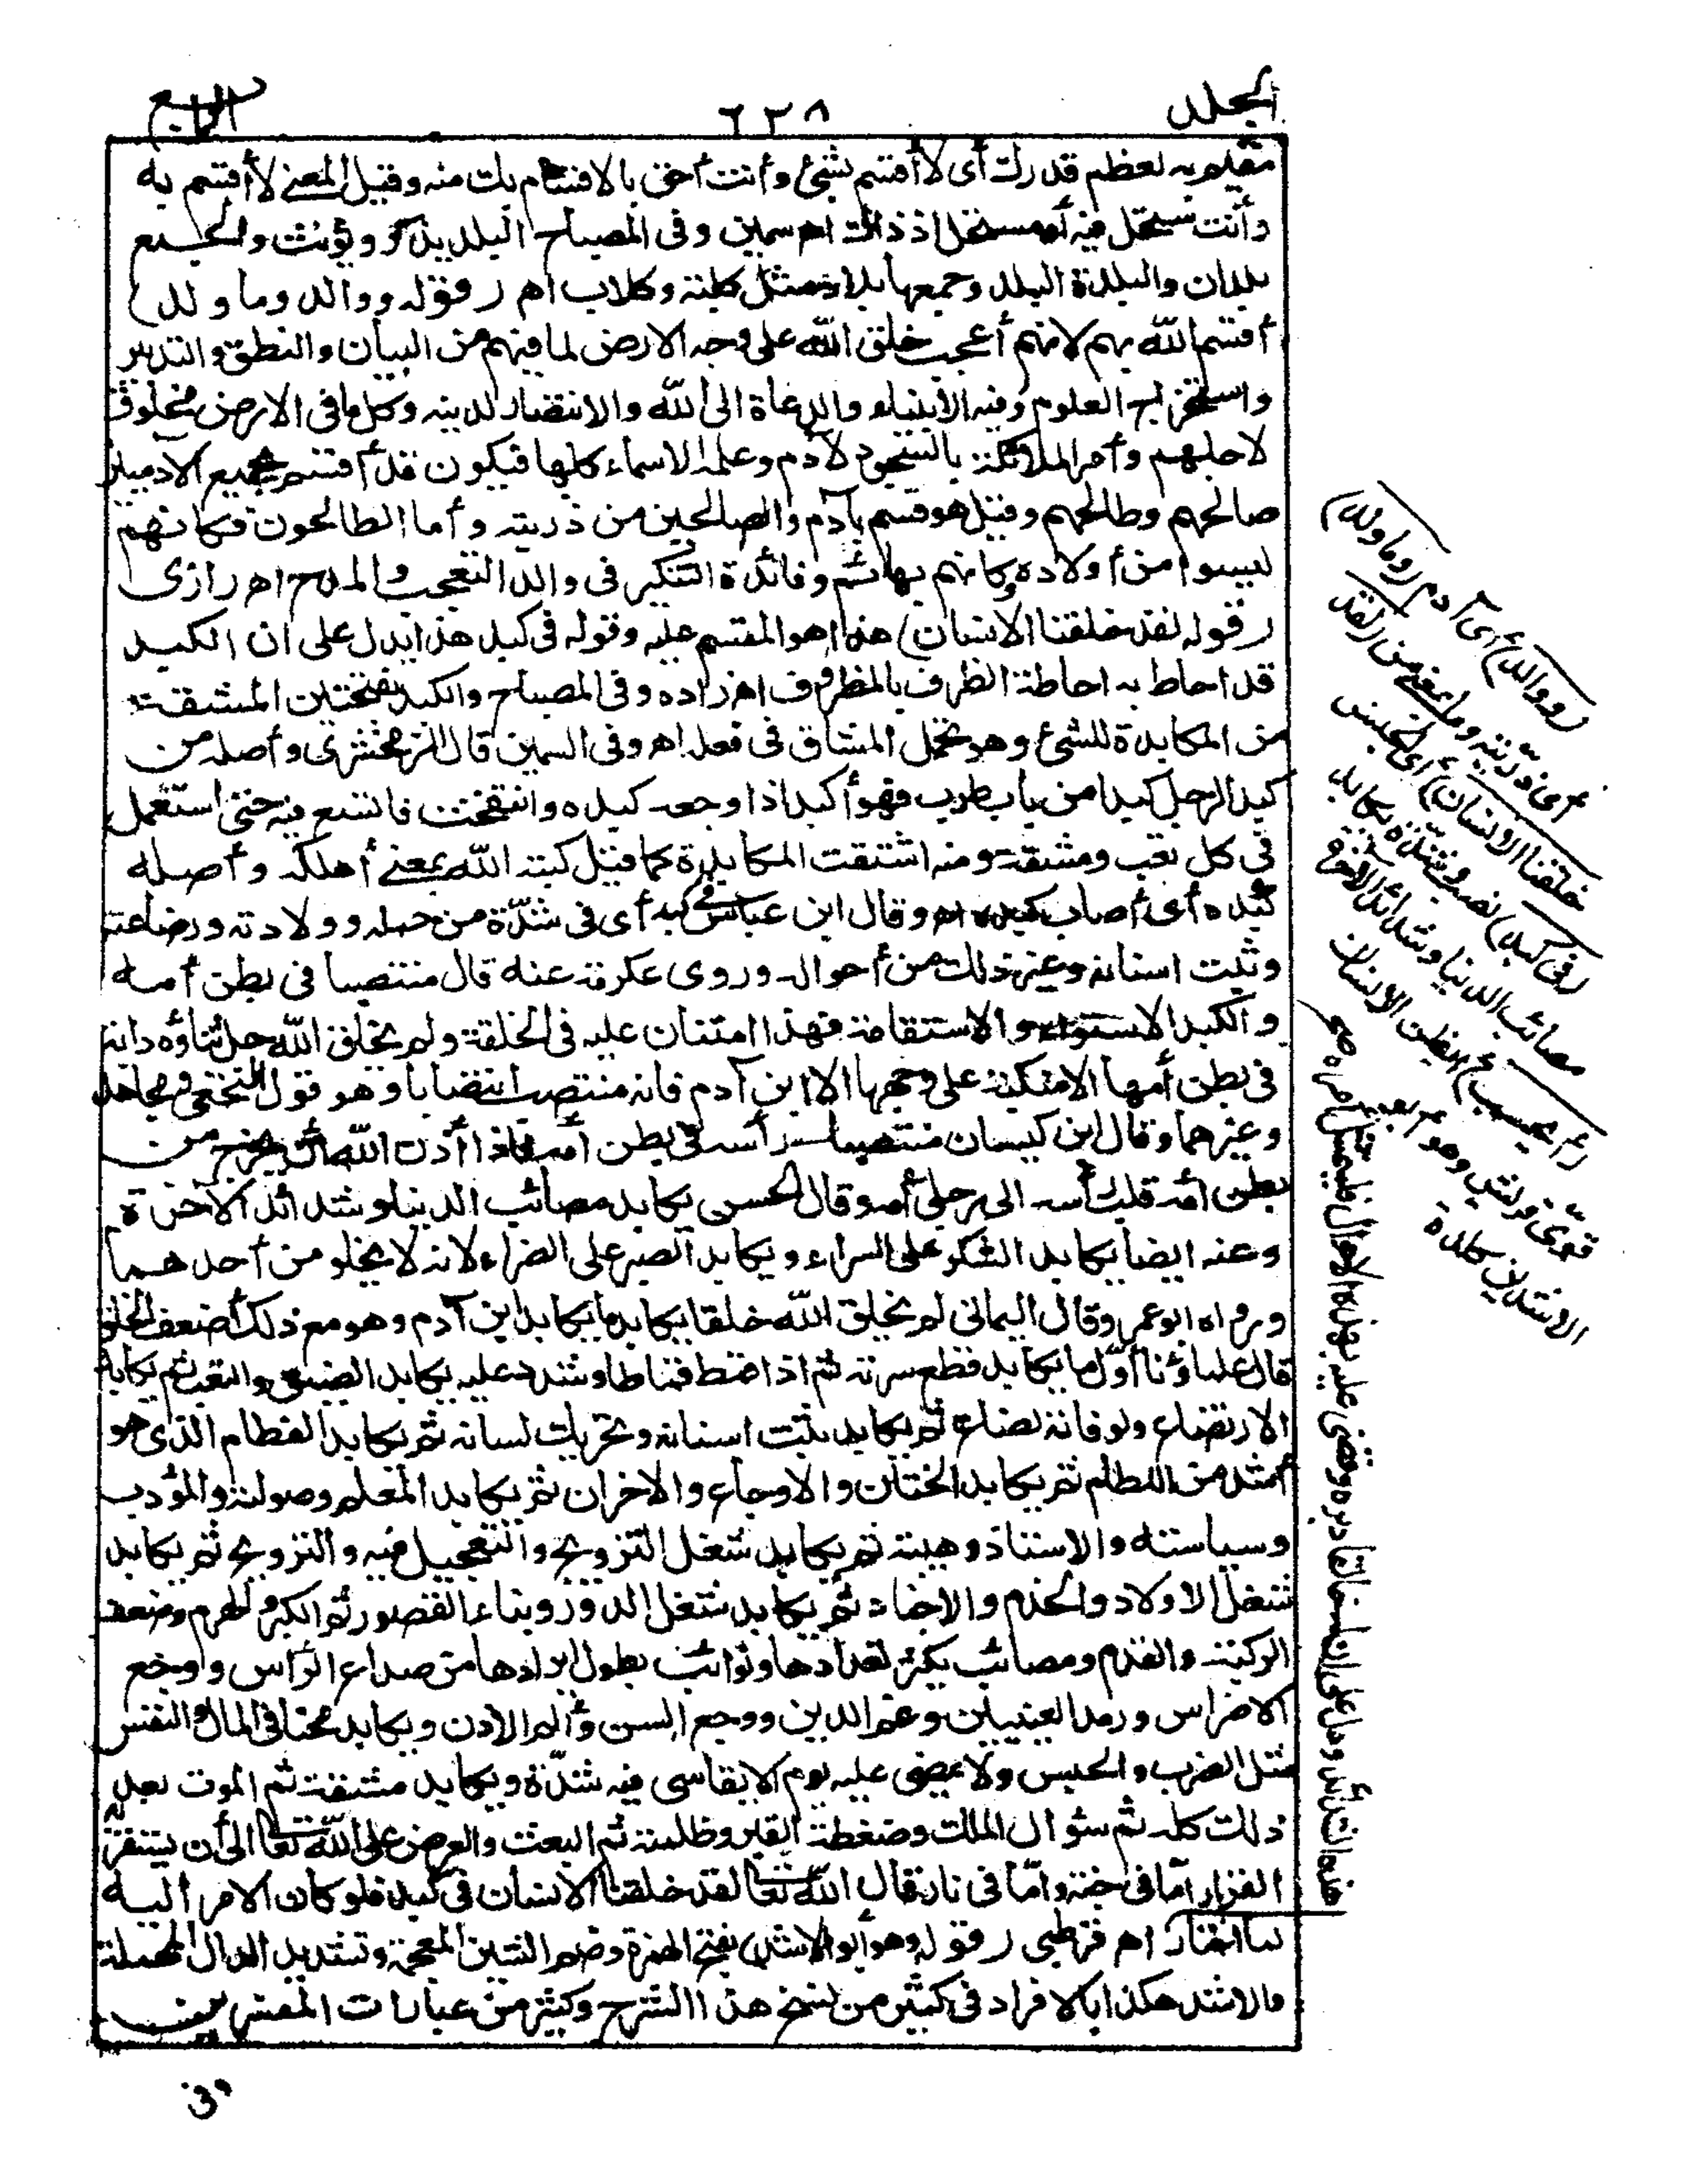 المجلد ٦٢٨ الرابع
مقيم به لعظم قدرك أى لا أقسم بشئ وأنت أحق بالاقسام بك منه وقيل المعنى لا أقسم به
وأنت مستحل فيه أى مستحل اذذاك اهـ سمين وفى المصباح البلد يذكر ويؤنث والجمع
بلدان والبلدة البلد وجمعها بلاد مثل كلبة وكلاب اهـ (قوله ووالد وما ولد)
أقسم الله بهم لانهم أعجب خلق الله على وجه الارض لما فيهم من البيان والنطق والتدبير
واستخراج العلوم وفيه الانبياء والدعاة الى الله والانتصار لدينه وكل ما فى الارض مخلوق
لاجلهم وأمر الملائكة بالسجود لآدم وعلمه الاسماء كلها فيكون قد أقسم بجميع الآدميين
صالحهم وطالحهم وقيل هو قسم بآدم والصالحين من ذريته وأما الطالحون فكانهم
ليسوا من أولاده وكانهم بهائم وفائدة التنكير فى والد التعجب والمدح اهـ رازى
(قوله لقد خلقنا الانسان) هذا هو المقسم عليه وقوله فى كبد هذا يدل على ان الكبد
قد احاط به احاطة الظرف بالمظروف اهـ زاده وفى المصباح والكبد بفتحتين المشقة
من المكابدة للشئ وهو تحمل المشاق فى فعله اهـ وفى السمين قال الزمخشرى وأصله من
كبد الرجل كبدا من باب طرب فهو أكبد اذا وجعه كبده وانتفخت فاتسع فيه حتى استعمل
فى كل تعب ومشقة ومنه اشتقت المكابدة كما قيل كبته الله بمعنى أهلكه وأصله
كبده أى أصاب كبده اهـ وقال ابن عباس فى كبد أى فى شدّة من حمله وولادته ورضاعته
ونبت اسنانه وغير ذلك من أحواله وروى عكرمة عنه قال منتصبا فى بطن أمه
والكبد الاستواء والاستقامة فهذا امتنان عليه فى الخلقة ولم يخلق الله جل ثناؤه دابة
فى بطن أمها الا منكبة على وجهها الا ابن آدم فانه منتصب انتصابا وهو قول النخعى ومجاهد
وغيرهما وقال ابن كيسان منتصبا رأسه فى بطن أمه فاذا أذن الله أن يخرج من
بطن أمه قلب رأسه الى رجلى أمه وقال الحسن يكابد مصائب الدنيا وشدائد الآخرة
وعنه ايضا يكابد الشكر على السراء ويكابد الصبر على الضراء لانه لا يخلو من أحدهما
ورواه ابو عمر وقال اليمانى لم يخلق الله خلقا يكابد ما يكابد ابن آدم وهو مع ذلك أضعف الخلق
قال علماؤنا أول ما يكابد قطع سرته ثم اذا قمط قماطا وشد عليه يكابد الضيق والتعب ثم يكابد
الارتضاع ولو فاته لضاع ثم يكابد نبت اسنانه وتحريك لسانه ثم يكابد الفطام الذى هو
أشد من اللطام ثم يكابد الختان والاوجاع والاحزان ثم يكابد المعلم وصولته والمؤدب
وسياسته والاستاذ وهيبته ثم يكابد شغل التزويج والتعجيل فيه والتزويج ثم يكابد
شغل الاولاد والخدم والاجناد ثم يكابد شغل الدور وبناء القصور ثم الكبر والهرم وضعف
الركبة والقدم ومصائب يكثر تعدادها ونوائب يطول ايرادها من صداع الرأس ووجع
الاضراس ورمد العينين وغم الدين ووجع السن وألم الاذن ويكابد محنا فى المال والنفس
مثل الضرب والحبس ولا يمضى عليه يوم الا يقاسى فيه شدّة ويكابد مشقة ثم الموت بعد
ذلك كله ثم سؤال الملك وضغطة القبر وظلمته ثم البعث والعرض على الله تعالى الى أن يستقر به
القرار امّا فى جنة وامّا فى نار قال الله تعالى لقد خلقنا الانسان فى كبد فلو كان الامر اليه
لما اختار اهـ قرطبى (قوله وهو أبو الاشد) بفتح الهمزة وضم الشين المعجمة وتشديد الدال المهملة
والاشد هكذا بالافراد فى كثير من نسخ هذا الشرح وكثير من عبارات المفسرين
فى
(ووالد) أى آدم (وما ولد)
أى ذرّيته وما بمعنى من (لقد
خلقنا الانسان) أى الجنس
(فى كبد) نصب وشدّة يكابد
مصائب الدنيا وشدائد الآخرة
(أيحسب) أيظن الانسان
قوىّ قريش وهو
الاشد بن كلدة
هذه الشدائد ودل على ان له خالقا دبره وقضى عليه بهذه الاحوال فليمتثل أمره صح